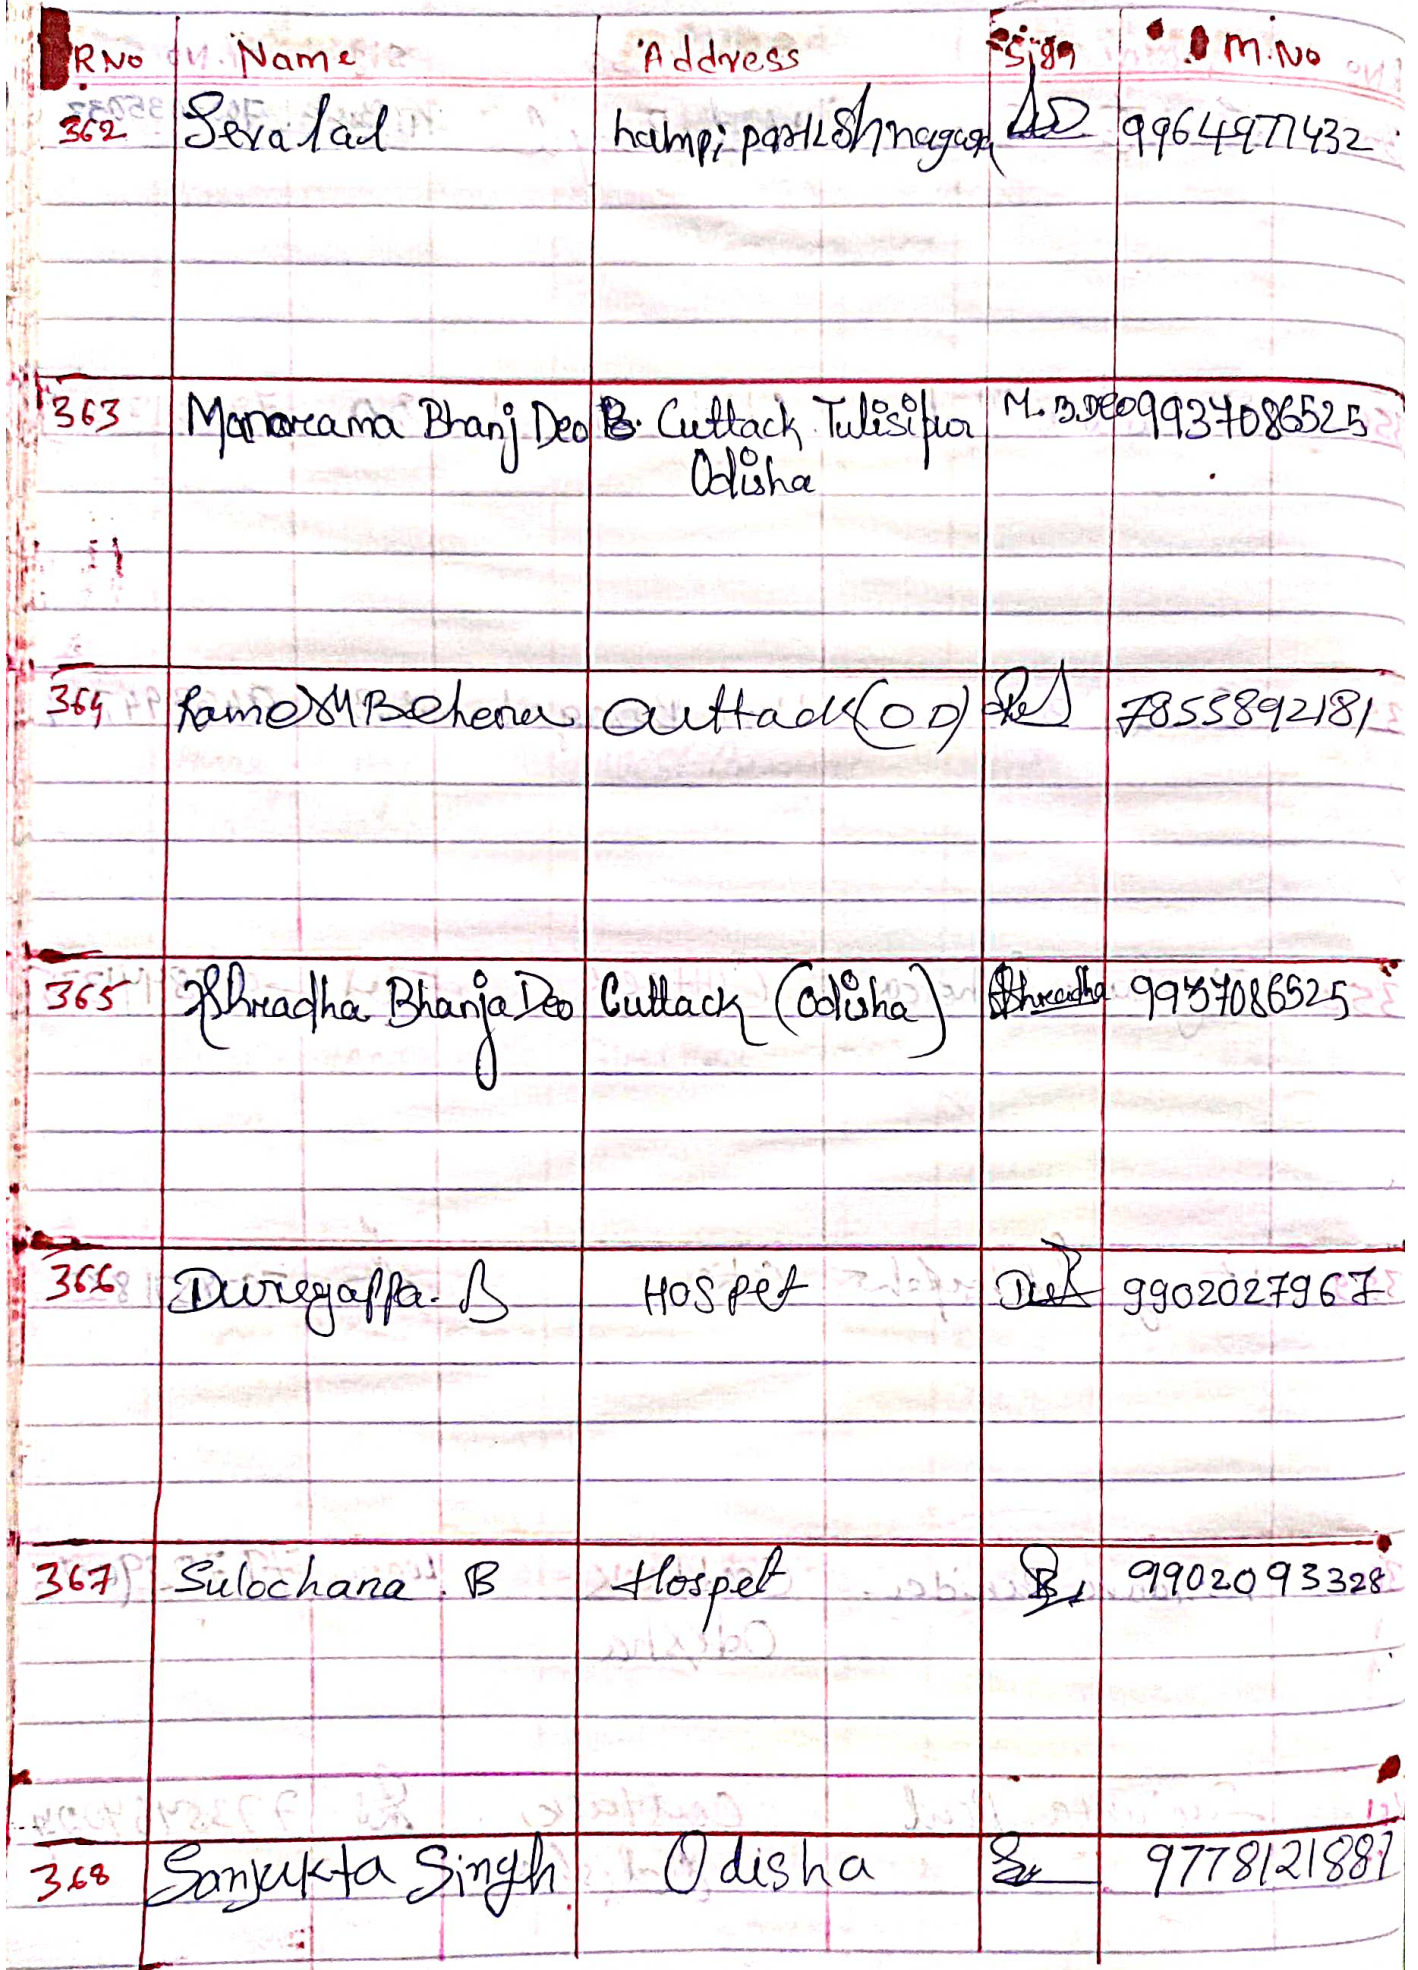 R No Name Address Sign M.No
362 Sevalal hampi park Sh nagar 9964977432
363 Manorama Bhanj Deo B. Cuttack Tulisipur M.B.DEO 9937086525
Odisha
364 Ramesh Behera Cuttack (OD) 7855892181
365 Shradha Bhanja Deo Cuttack (Odisha) Shradha 9937086525
366 Duregappa. B HOSPet 9902027967
367 Sulochana. B Hospet 9902093328
368 Sanjukta Singh Odisha 9778121881